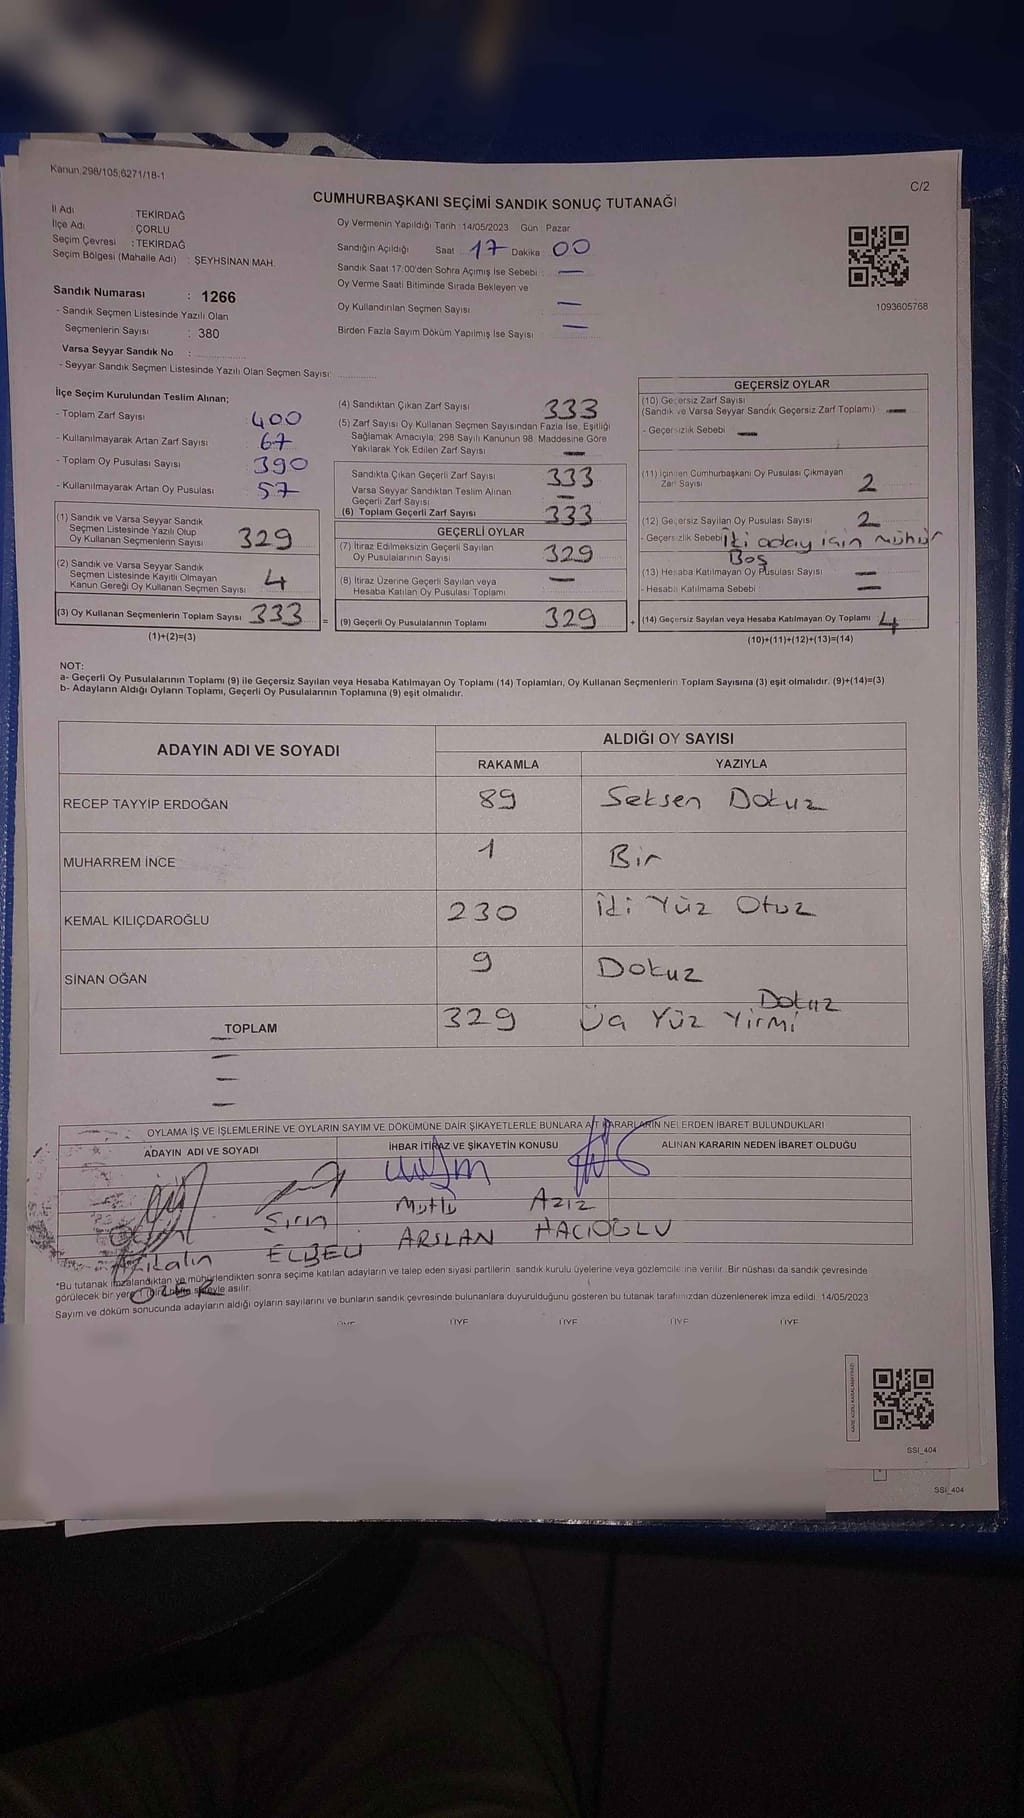 Kanun.298/105,6271/18-1
C/2
CUMHURBAŞKANI SEÇİMİ SANDIK SONUÇ TUTANAĞI
İl Adı : TEKİRDAĞ
İlçe Adı : ÇORLU
Seçim Çevresi : TEKİRDAĞ
Seçim Bölgesi (Mahalle Adı) : ŞEYHSİNAN MAH.
Sandık Numarası : 1266
- Sandık Seçmen Listesinde Yazılı Olan
Seçmenlerin Sayısı : 380
Varsa Seyyar Sandık No :
- Seyyar Sandık Seçmen Listesinde Yazılı Olan Seçmen Sayısı:
Oy Vermenin Yapıldığı Tarih : 14/05/2023 Gün : Pazar
Sandığın Açıldığı Saat 17 Dakika 00
Sandık Saat 17:00'den Sonra Açımış İse Sebebi : —
Oy Verme Saati Bitiminde Sırada Bekleyen ve
Oy Kullandırılan Seçmen Sayısı : —
Birden Fazla Sayım Döküm Yapılmış İse Sayısı : —
1093605768
İlçe Seçim Kurulundan Teslim Alınan;
- Toplam Zarf Sayısı : 400
- Kullanılmayarak Artan Zarf Sayısı : 67
- Toplam Oy Pusulası Sayısı : 390
- Kullanılmayarak Artan Oy Pusulası : 57
(1) Sandık ve Varsa Seyyar Sandık
Seçmen Listesinde Yazılı Olup
Oy Kullanan Seçmenlerin Sayısı 329
(2) Sandık ve Varsa Seyyar Sandık
Seçmen Listesinde Kayıtlı Olmayan
Kanun Gereği Oy Kullanan Seçmen Sayısı 4
(3) Oy Kullanan Seçmenlerin Toplam Sayısı 333 =
(1)+(2)=(3)
(4) Sandıktan Çıkan Zarf Sayısı 333
(5) Zarf Sayısı Oy Kullanan Seçmen Sayısından Fazla İse, Eşitliği
Sağlamak Amacıyla; 298 Sayılı Kanunun 98. Maddesine Göre
Yakılarak Yok Edilen Zarf Sayısı —
Sandıkta Çıkan Geçerli Zarf Sayısı 333
Varsa Seyyar Sandıktan Teslim Alınan
Geçerli Zarf Sayısı —
(6) Toplam Geçerli Zarf Sayısı 333
GEÇERLİ OYLAR
(7) İtiraz Edilmeksizin Geçerli Sayılan
Oy Pusulalarının Sayısı 329
(8) İtiraz Üzerine Geçerli Sayılan veya
Hesaba Katılan Oy Pusulası Toplamı —
(9) Geçerli Oy Pusulalarının Toplamı 329 +
GEÇERSİZ OYLAR
(10) Geçersiz Zarf Sayısı
(Sandık ve Varsa Seyyar Sandık Geçersiz Zarf Toplamı) : —
- Geçersizlik Sebebi : —
(11) İçinden Cumhurbaşkanı Oy Pusulası Çıkmayan
Zarf Sayısı 2
(12) Geçersiz Sayılan Oy Pusulası Sayısı 2
- Geçersizlik Sebebi İki aday için mühür
Boş
(13) Hesaba Katılmayan Oy Pusulası Sayısı : —
- Hesaba Katılmama Sebebi : —
(14) Geçersiz Sayılan veya Hesaba Katılmayan Oy Toplamı 4
(10)+(11)+(12)+(13)=(14)
NOT:
a- Geçerli Oy Pusulalarının Toplamı (9) ile Geçersiz Sayılan veya Hesaba Katılmayan Oy Toplamı (14) Toplamları, Oy Kullanan Seçmenlerin Toplam Sayısına (3) eşit olmalıdır. (9)+(14)=(3)
b- Adayların Aldığı Oyların Toplamı, Geçerli Oy Pusulalarının Toplamına (9) eşit olmalıdır.
ADAYIN ADI VE SOYADI
ALDIĞI OY SAYISI
RAKAMLA YAZIYLA
RECEP TAYYİP ERDOĞAN 89 Seksen Dokuz
MUHARREM İNCE 1 Bir
KEMAL KILIÇDAROĞLU 230 İki Yüz Otuz
SİNAN OĞAN 9 Dokuz
TOPLAM 329 Üç Yüz Yirmi Dokuz
OYLAMA İŞ VE İŞLEMLERİNE VE OYLARIN SAYIM VE DÖKÜMÜNE DAİR ŞİKAYETLERLE BUNLARA AİT KARARLARIN NELERDEN İBARET BULUNDUKLARI
ADAYIN ADI VE SOYADI İHBAR İTİRAZ VE ŞİKAYETİN KONUSU ALINAN KARARIN NEDEN İBARET OLDUĞU
ÖZER
Şirin
ELBELİ
Mutlu
ARSLAN
Aziz
HACIOĞLU
*Bu tutanak imzalandıktan ve mühürlendikten sonra seçime katılan adayların ve talep eden siyasi partilerin sandık kurulu üyelerine veya gözlemcilerine verilir. Bir nüshası da sandık çevresinde
görülecek bir yere asılır.
Sayım ve döküm sonucunda adayların aldığı oyların sayılarını ve bunların sandık çevresinde bulunanlara duyurulduğunu gösteren bu tutanak tarafımızdan düzenlenerek imza edildi. 14/05/2023
ÜYE ÜYE ÜYE ÜYE ÜYE
SSİ_404
SSİ_404